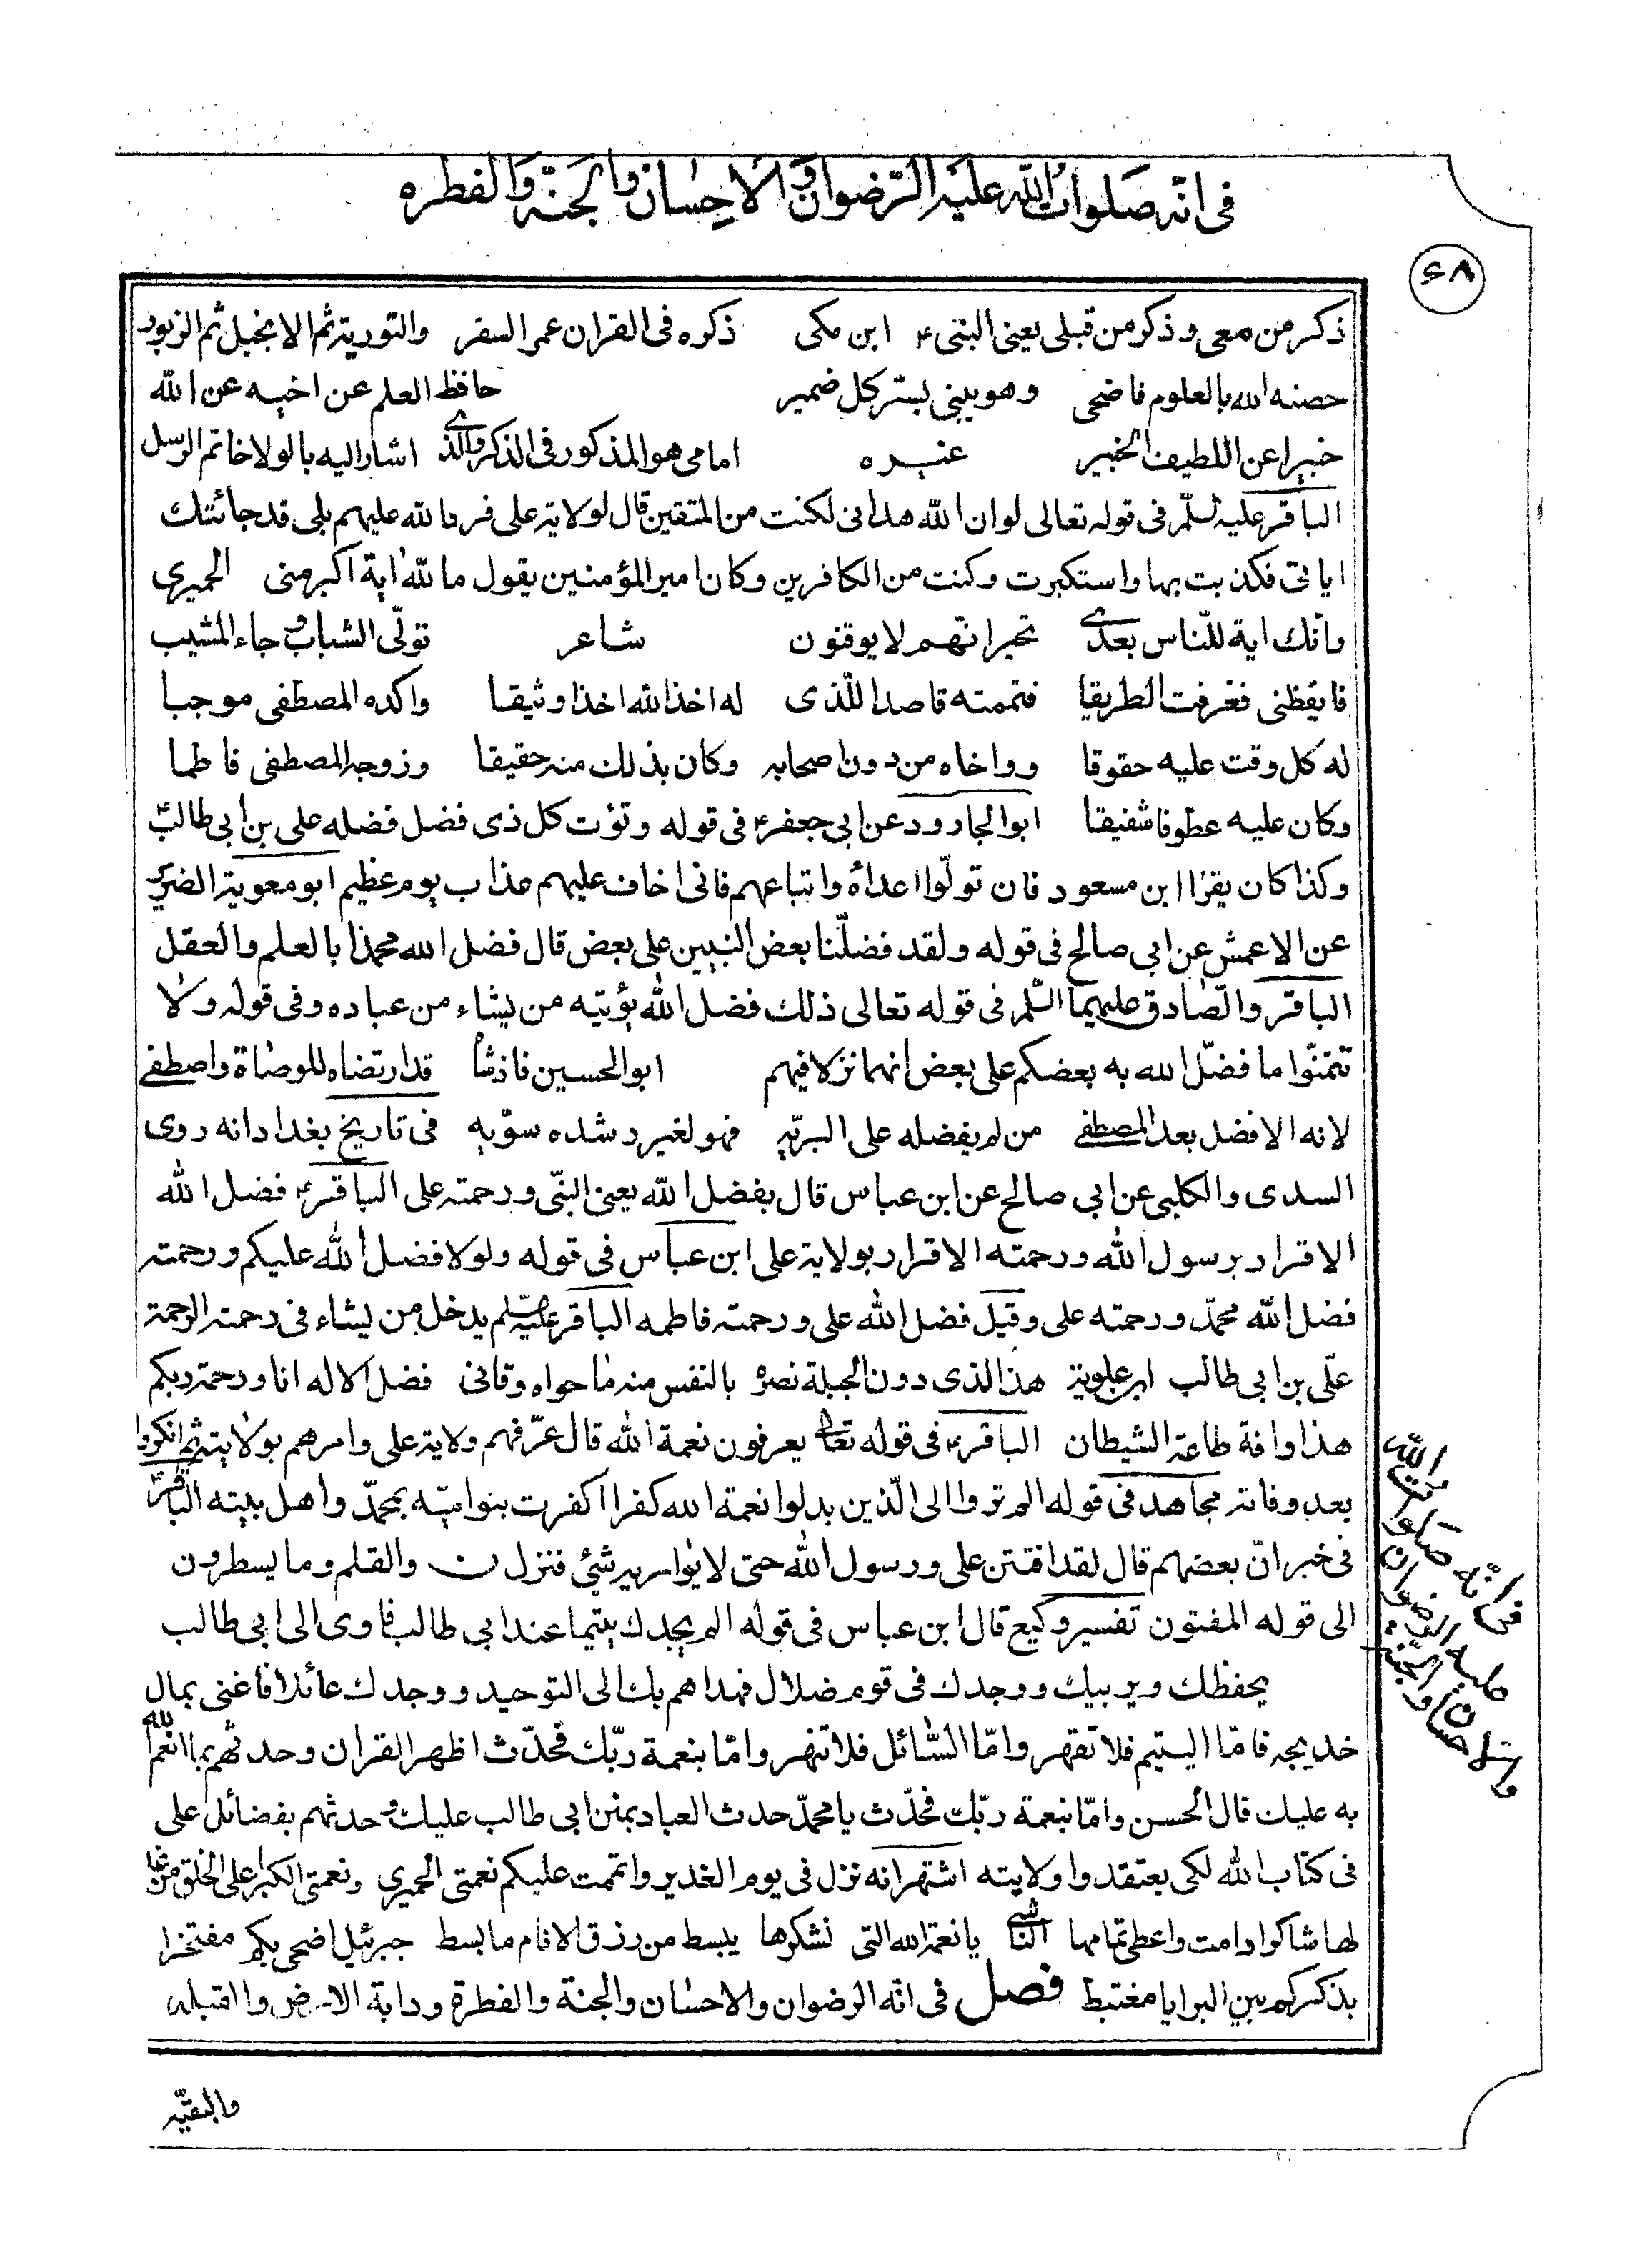 فى انّه صلوات الله عليه الرّضوان والاحسان والجنّة والفطره
۶۸
ذكر من معى وذكر من قبلى يعنى النبى ع ابن مكى ذكره فى القران عمر السفر والتورية ثم الانجيل ثم الزبور
حصنه الله بالعلوم فاضحى وهو ينبى بستر كل ضمير حافظ العلم عن اخيه عن الله
خبيرا عن اللطيف الخبير غيره امامى هو المذكور فى الذكر والذى اشار اليه بالولا خاتم الرسل
الباقر عليه السّلم فى قوله تعالى لو ان الله هدانى لكنت من المتقين قال لولاية على فرد الله عليهم بلى قد جائتك
اياتى فكذبت بها واستكبرت وكنت من الكافرين وكان امير المؤمنين يقول ما لله اية اكبر منى الحميرى
وانك اية للنّاس بعدى تخبر انّهم لا يوقنون شاعر تولّى الشباب وجاء المشيب
فايقظنى فعرفت الطريقا فتممته قاصدا للّذى له اخذ الله اخذا وثيقا واكده المصطفى موجبا
له كل وقت عليه حقوقا وواخاه من دون اصحابه وكان بذلك منه حقيقا وزوجه المصطفى فاطما
وكان عليه عطوفا شفيقا ابو الجارود عن ابى جعفر ع فى قوله وتؤت كل ذى فضل فضله على بن ابى طالب ع
وكذا كان يقرا ابن مسعود فان تولّوا اعداه واتباعهم فانى اخاف عليهم عذاب يوم عظيم ابو معوية الضرير
عن الاعمش عن ابى صالح فى قوله ولقد فضلّنا بعض النبيين على بعض قال فضل الله محمدا بالعلم والعقل
الباقر والصّادق عليهما السّلم فى قوله تعالى ذلك فضل الله يؤتيه من يشاء من عباده وفى قوله ولا
تتمنّوا ما فضّل الله به بعضكم على بعض انهما نزلا فيهم ابو الحسين فاذشا قد ارتضاه للوصاة واصطفى
لانه الافضل بعد المصطفى من لم يفضله على البريّه فهو لغير رشده سويّه فى تاريخ بغداد انه روى
السدى والكلبى عن ابى صالح عن ابن عباس قال بفضل الله يعنى النبّى ورحمته على الباقر ع فضل الله
الاقرار برسول الله ورحمته الاقرار بولاية على ابن عباس فى قوله ولولا فضل الله عليكم ورحمته
فضل الله محمّد ورحمته على وقيل فضل الله على ورحمته فاطمه الباقر عليه السّلم يدخل من يشاء فى رحمته الرحمة
علّى بن ابى طالب ابن علوية هذا الذى دون الجبلة نصره بالنفس منه ما حواه وقانى فضل الاله انا ورحمة ربكم
هذا وافة طاعة الشيطان الباقر ع فى قوله تعالى يعرفون نعمة الله قال عرّفهم ولاية على وامرهم بولايته ثم انكروا
بعد وفاته مجاهد فى قوله الم تروا الى الّذين بدلوا نعمة الله كفرا اكفرت بنو اميّه بمحمدّ واهل بيته الباقر ع
فى خبر انّ بعضهم قال لقد افتتن على ورسول الله حتى لا يوازيه شئ فنزل ن والقلم وما يسطرون
الى قوله المفتون تفسير وكيع قال ابن عباس فى قوله الم يجدك يتيما عند ابى طالب فاوى الى ابى طالب
يحفظك ويربيك ووجدك فى قوم ضلال فهداهم بك الى التوحيد ووجدك عائلا فاغنى بمال
خديجه فامّا اليتيم فلا تقهر وامّا السّائل فلا تنهر وامّا بنعمة ربّك فحدّث اظهر القران وحدثهم بما انعم الله
به عليك قال الحسن وامّا بنعمة ربّك فحدّث يا محمدّ حدث العباد بمنن ابى طالب عليك وحدثهم بفضائل على
فى كتاب الله لكى يعتقدوا ولايته اشتهر انه نزل فى يوم الغدير واتممت عليكم نعمتى الحميرى ونعمتى الكبرا على الخلق من غدا
لها شاكرا دامت واعطى تمامها الناشى يا نعمة الله التى نشكرها يبسط من رزق الانام ما بسط جبرئيل اضحى بكم مفتخرا
بذكركم بين البرايا مغتبط فصل فى انّه الرضوان والاحسان والجنة والفطرة ودابة الارض والقبله
والبقيّه
فى انّه صلوات الله
عليه الرضوان
والاحسان والجنّه